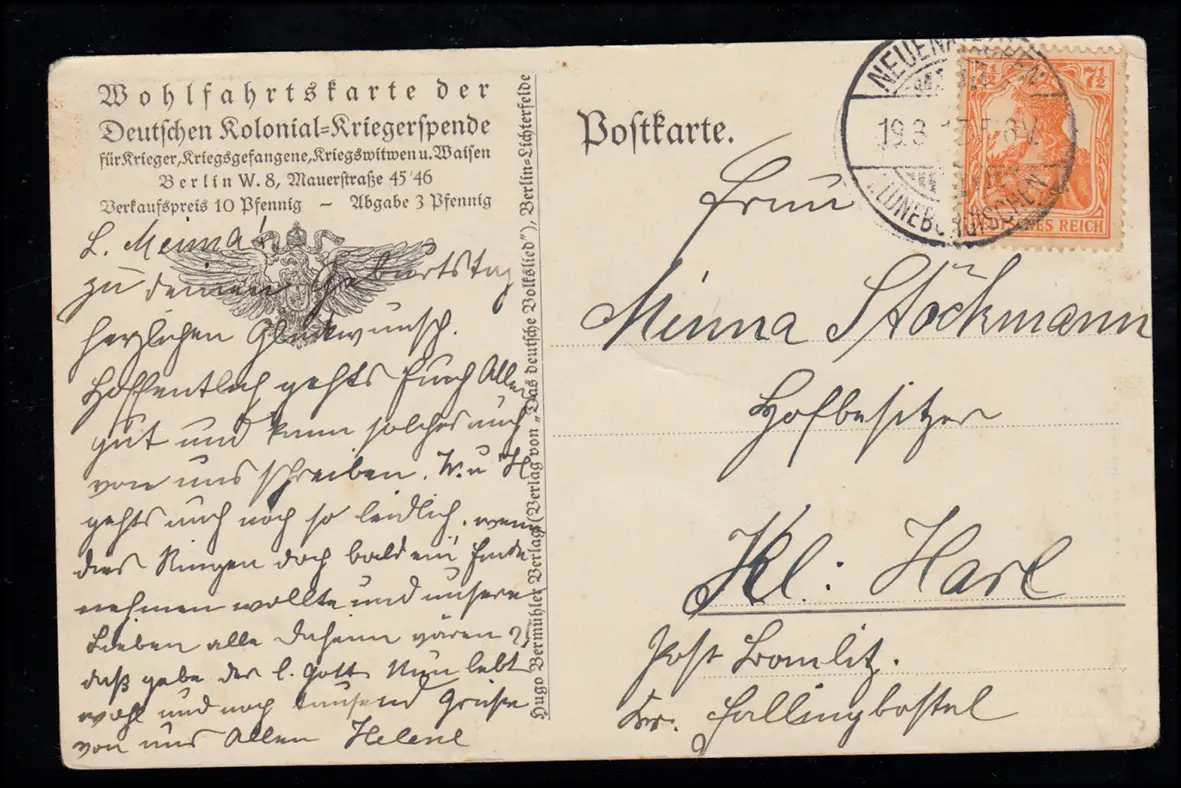 Wohlfahrtskarte der
Deutschen Kolonial=Kriegerspende
für Krieger, Kriegsgefangene, Kriegswitwen u. Waisen
Berlin W. 8, Mauerstraße 45 46
Verkaufspreis 10 Pfennig – Abgabe 3 Pfennig
L. Minna!
zu deinem Geburtstag
herzlichen Glückwunsch.
Hoffentlich gehts Euch Allen
gut und kann solches auch
von uns schreiben. W. u H
gehts auch noch so leidlich, wenn
dies Ringen doch bald ein Ende
nehmen wollte und unsere
Lieben alle daheim wären
daß gebe der l. Gott. Nun lebt
wohl und noch tausend Grüße
von uns Allen Helene
Hugo Bermühler Verlag (Verlag von „Das deutsche Volkslied"), Berlin=Lichterfelde
Postkarte.
Frau
Minna Stöckmann
Hofbesitzer
Kl: Harl
Post Bomlitz.
Kr. Fallingbostel
NEUENKIRCHEN
19.3.17. 5-6V.
(LÜNEBURGISCHEN)
7½ 7½
DEUTSCHES REICH